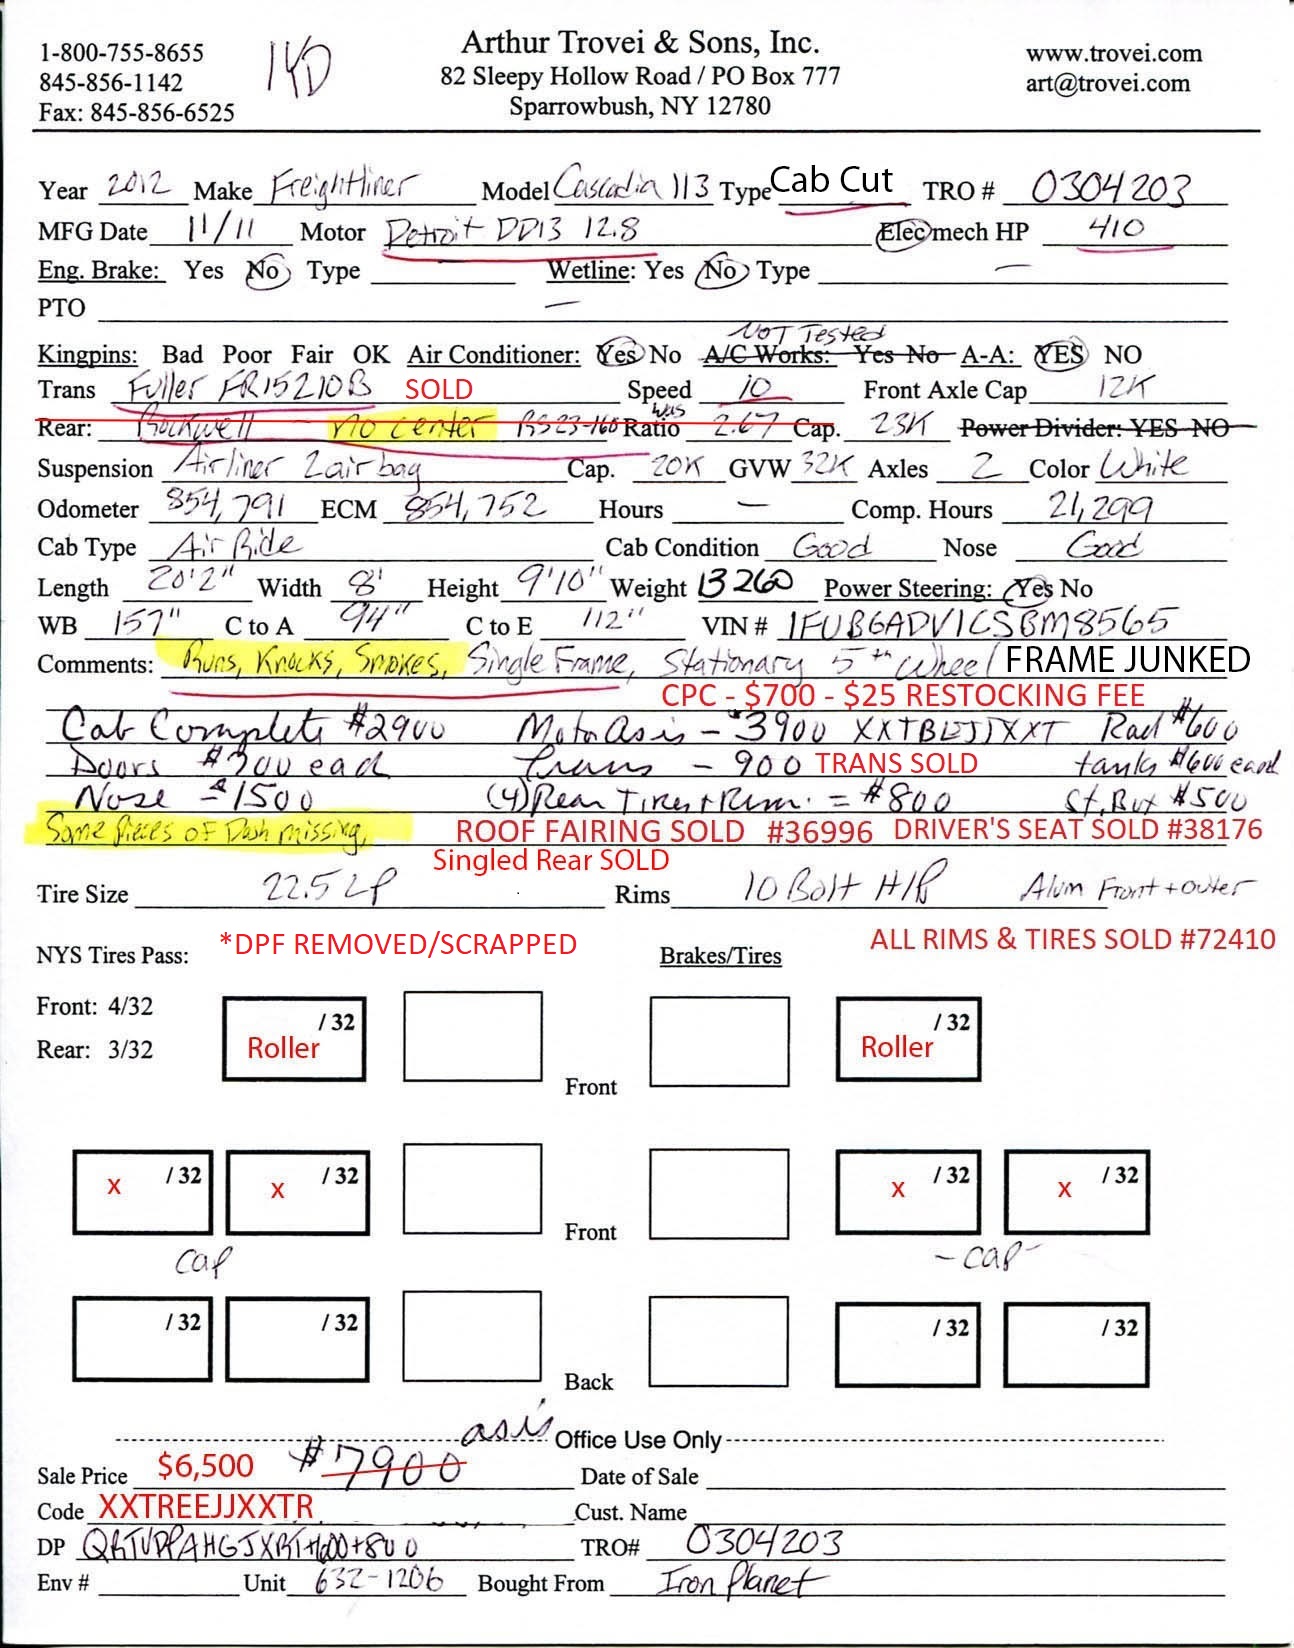 1-800-755-8655
845-856-1142
Fax: 845-856-6525
Arthur Trovei & Sons, Inc.
82 Sleepy Hollow Road / PO Box 777
Sparrowbush, NY 12780
www.trovei.com
art@trovei.com
Year 2012 Make Freightliner Model Cascadia 113 Type Cab Cut TRO # 0304203
MFG Date 11/11 Motor Detroit DD13 12.8 Elec mech HP 410
Eng. Brake: Yes No Type Wetline: Yes No Type —
PTO —
Not Tested
Kingpins: Bad Poor Fair OK Air Conditioner: Yes No A/C Works: Yes No A-A: YES NO
Trans Fuller FR15210B SOLD Speed 10 Front Axle Cap 12K
Rear: Rockwell no center RS23-160 Ratio was 2.67 Cap. 23K Power Divider: YES NO
Suspension Airliner 2 air bag Cap. 20K GVW 32K Axles 2 Color White
Odometer 854,791 ECM 854,752 Hours — Comp. Hours 21,299
Cab Type Air Ride Cab Condition Good Nose Good
Length 20'2" Width 8' Height 9'10" Weight 13260 Power Steering: Yes No
WB 157" C to A 94" C to E 112" VIN # 1FUBGADV1CSBM8565
Comments: Runs, Knocks, Smokes, Single Frame, Stationary 5th Wheel FRAME JUNKED
CPC - $700 - $25 RESTOCKING FEE
Cab Complete #2900 Motor as is - $3900 XXTBLJJXXT Rad #600
Doors #300 each Trans - 900 TRANS SOLD tanks #600 each
Nose - 1500 (4) Rear Tires + Rims = #800 St. Box #500
Some pieces of Dash missing, ROOF FAIRING SOLD #36996 DRIVER'S SEAT SOLD #38176
Singled Rear SOLD
Tire Size 22.5 LP Rims 10 Bolt H/P Alum Front + outer
NYS Tires Pass: *DPF REMOVED/SCRAPPED Brakes/Tires ALL RIMS & TIRES SOLD #72410
Front: 4/32
Rear: 3/32
/ 32 / 32
Roller Roller
Front
x / 32 x / 32 x / 32 x / 32
Front
Cap - Cap -
/ 32 / 32 / 32 / 32
Back
as is Office Use Only
Sale Price $6,500 #7900 Date of Sale
Code XXTREEJJXXTR Cust. Name
DP +600+800 TRO# 0304203
Env # Unit 632-1206 Bought From Iron Planet